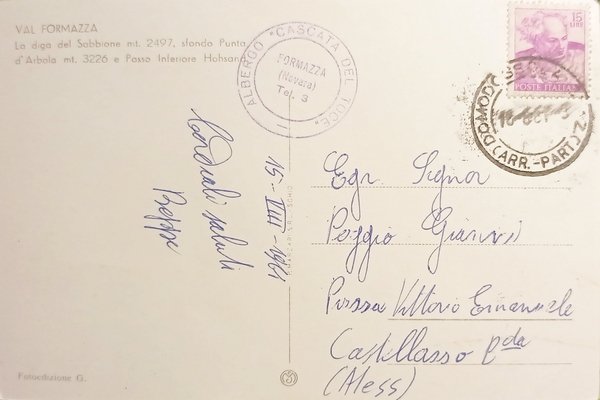 VAL FORMAZZA
La diga del Sabbione mt. 2497, sfondo Punta
d'Arbola mt. 3226 e Passo Inferiore Hohsand
ALBERGO "CASCATA DEL TOCE"
FORMAZZA
(Novara)
Tel. 3
15
LIRE
POSTE ITALIANE
DOMODOSSOLA
(ARR.-PART.)
Cordiali saluti
Beppe
15-VIII-1961
Egr. Signor
Poggio Gianni
Piazza Vittorio Emanuele
Castellasso Bda
(Aless)
Fotoedizione G.